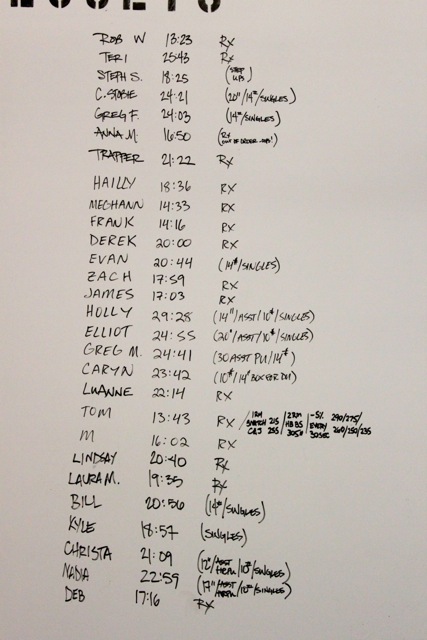 ROB W 13:23 RX
TERI 25:43 RX
STEPH S. 18:25 (STEP UPS)
C. STOBIE 24:21 (20"/14#/SINGLES)
GREG F. 24:03 (14#/SINGLES)
ANNA M. 16:50 (RX OUT OF ORDER
TRAPPER 21:22 RX
HAILLY 18:36 RX
MEGHANN 14:33 RX
FRANK 14:16 RX
DEREK 20:00 RX
EVAN 20:44 (14#/SINGLES)
ZACH 17:59 RX
JAMES 17:03 RX
HOLLY 29:28 (14"/ASST/10#/SINGLES)
ELLIOT 24:55 (20"/ASST/10#/SINGLES)
GREG M. 24:41 (30 ASST PU/14#)
CARYN 23:42 (10#/14" BOX FOR DU)
LUANNE 22:14 RX
TOM 13:43 RX / 1RM SNATCH 215 C&J 255 / 2RM HBBS 305# / -5% EVERY 30SEC 290/275/ 260/250/235
M 16:02 RX
LINDSAY 20:40 RX
LAURA M. 19:35 RX
BILL 20:56 (14#/SINGLES)
KYLE 18:57 (SINGLES)
CHRISTA 21:09 (12"/ASST /10#/SINGLES)
NADIA 22:59 (12"/ASST /10#/SINGLES)
DEB 17:16 RX